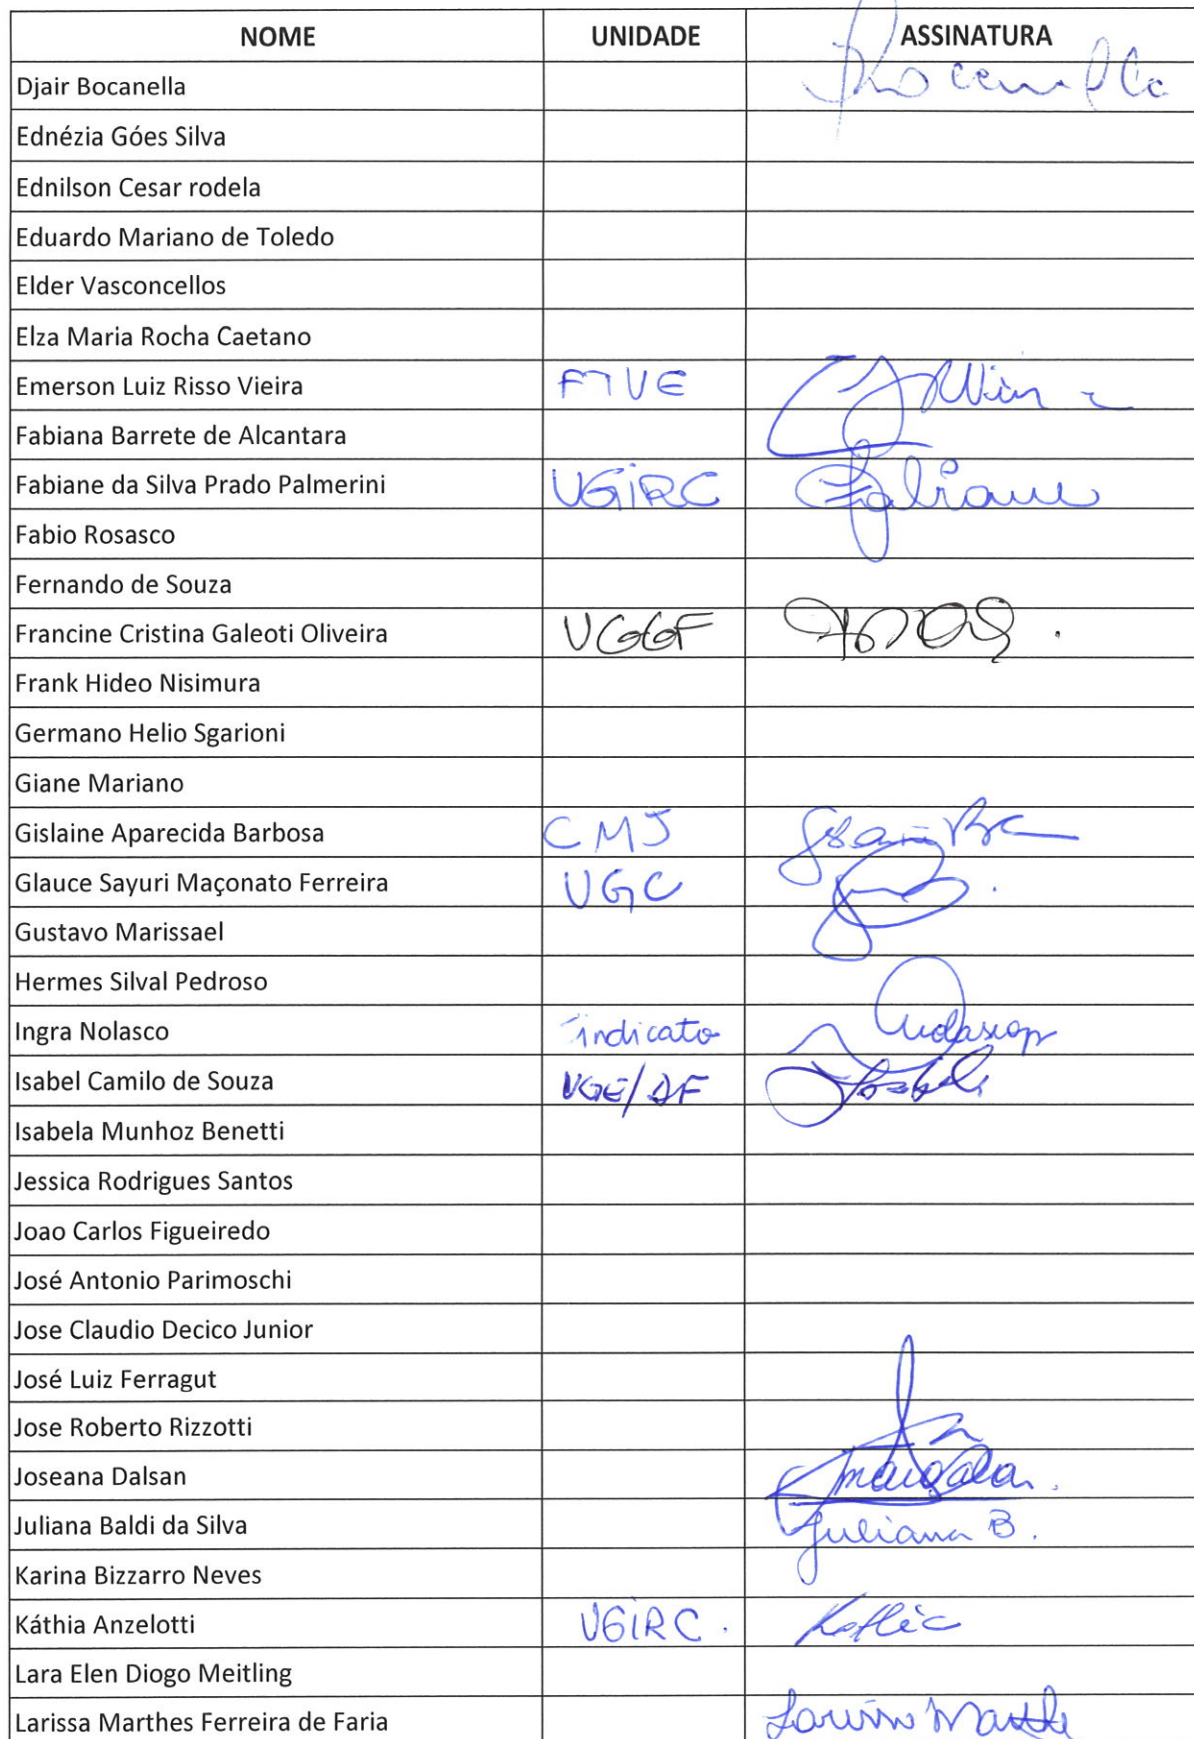 NOME UNIDADE ASSINATURA
Djair Bocanella
Ednézia Góes Silva
Ednilson Cesar rodela
Eduardo Mariano de Toledo
Elder Vasconcellos
Elza Maria Rocha Caetano
Emerson Luiz Risso Vieira
Fabiana Barrete de Alcantara
Fabiane da Silva Prado Palmerini UGIRC Fabiane
Fabio Rosasco
Fernando de Souza
Francine Cristina Galeoti Oliveira UGGF
Frank Hideo Nisimura
Germano Helio Sgarioni
Giane Mariano
Gislaine Aparecida Barbosa CMJ
Glauce Sayuri Maçonato Ferreira UGC
Gustavo Marissael
Hermes Silval Pedroso
Ingra Nolasco Sindicato
Isabel Camilo de Souza UGE/DF Isabel
Isabela Munhoz Benetti
Jessica Rodrigues Santos
Joao Carlos Figueiredo
José Antonio Parimoschi
Jose Claudio Decico Junior
José Luiz Ferragut
Jose Roberto Rizzotti
Joseana Dalsan
Juliana Baldi da Silva Juliana B.
Karina Bizzarro Neves
Káthia Anzelotti UGIRC.
Lara Elen Diogo Meitling
Larissa Marthes Ferreira de Faria